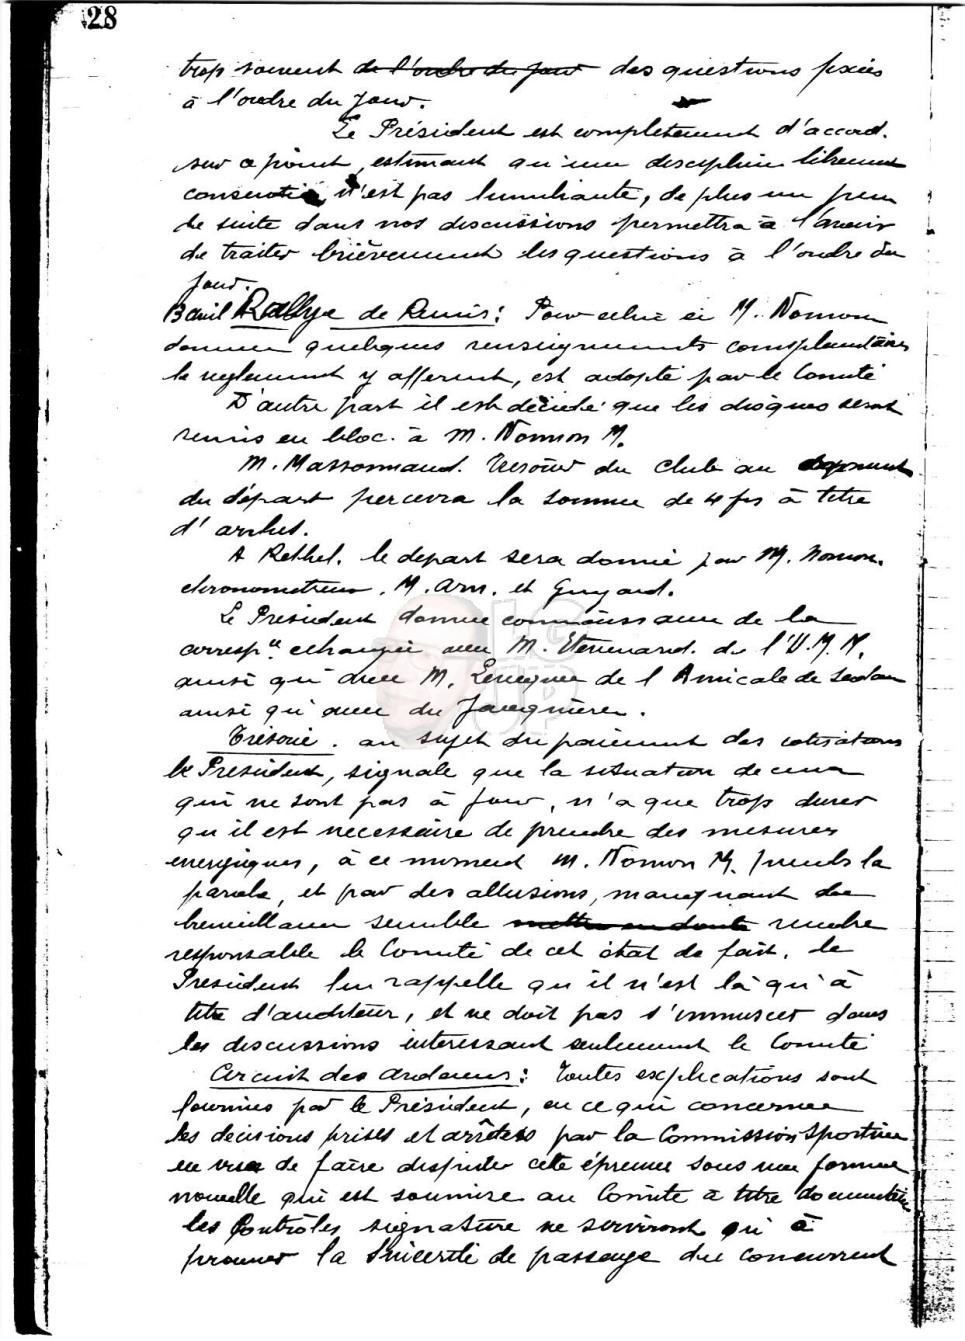 28
trop souvent de l'ordre du jour des questions fixées
à l'ordre du jour.
Le Président est completement d'accord.
sur ce point, estimant qu'une discipline librement
consentie n'est pas humiliante, de plus un peu
de suite dans nos discussions permettra à l'avenir
de traiter brièvement les questions à l'ordre du
jour.
13 avril Rallye de Reims: Pour celui ci M. Nomon
donne quelques renseignements complémentaires
le reglement y afferent, est adopté par le Comité
D'autre part il est décidé que les disques seront
remis en bloc à M. Nomon M.
M. Massonnaud. Trésorier du Club au
du départ percevra la somme de 4 frs à titre
d'arrhes.
A Rethel. le depart sera donné par M. Nomon.
chronometreur. M. Arn. et Guyard.
Le President donne connaissance de la
corresp.ce echangée avec M. de l'U.M.
ainsi qu'avec M. de l'Amicale de Sedan
ainsi qu'avec du
Trésorie. au sujet du paiement des cotisations
le President, signale que la situation de ceux
qui ne sont pas à jour, n'a que trop durer
qu il est necessaire de prendre des mesures
energiques, à ce moment M. Nomon M. prends la
parole, et par des allusions, manquant de
bienveillance semble mettre en doute rendre
responsable le Comité de cet état de fait. le
President lui rappelle qu il n'est là qu'à
titre d'auditeur, et ne doit pas s'immiscer dans
les discussions interessant seulement le Comité
Circuit des Ardennes: Toutes explications sont
fournies par le Président, en ce qui concerne
les decisions prises et arrêtés par la Commission Sportive
en vue de faire disputer cette épreuve sous une forme
nouvelle qui est soumise au Comité à titre documentaire
les Contrôles signature ne serviront qu'à
prouver la Sincerité de passage du concurrent
LG UP